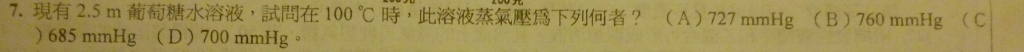 7. 現有 2.5 m 葡萄糖水溶液，試問在 100 ℃ 時，此溶液蒸氣壓為下列何者？ （A）727 mmHg （B）760 mmHg （C
）685 mmHg （D）700 mmHg。